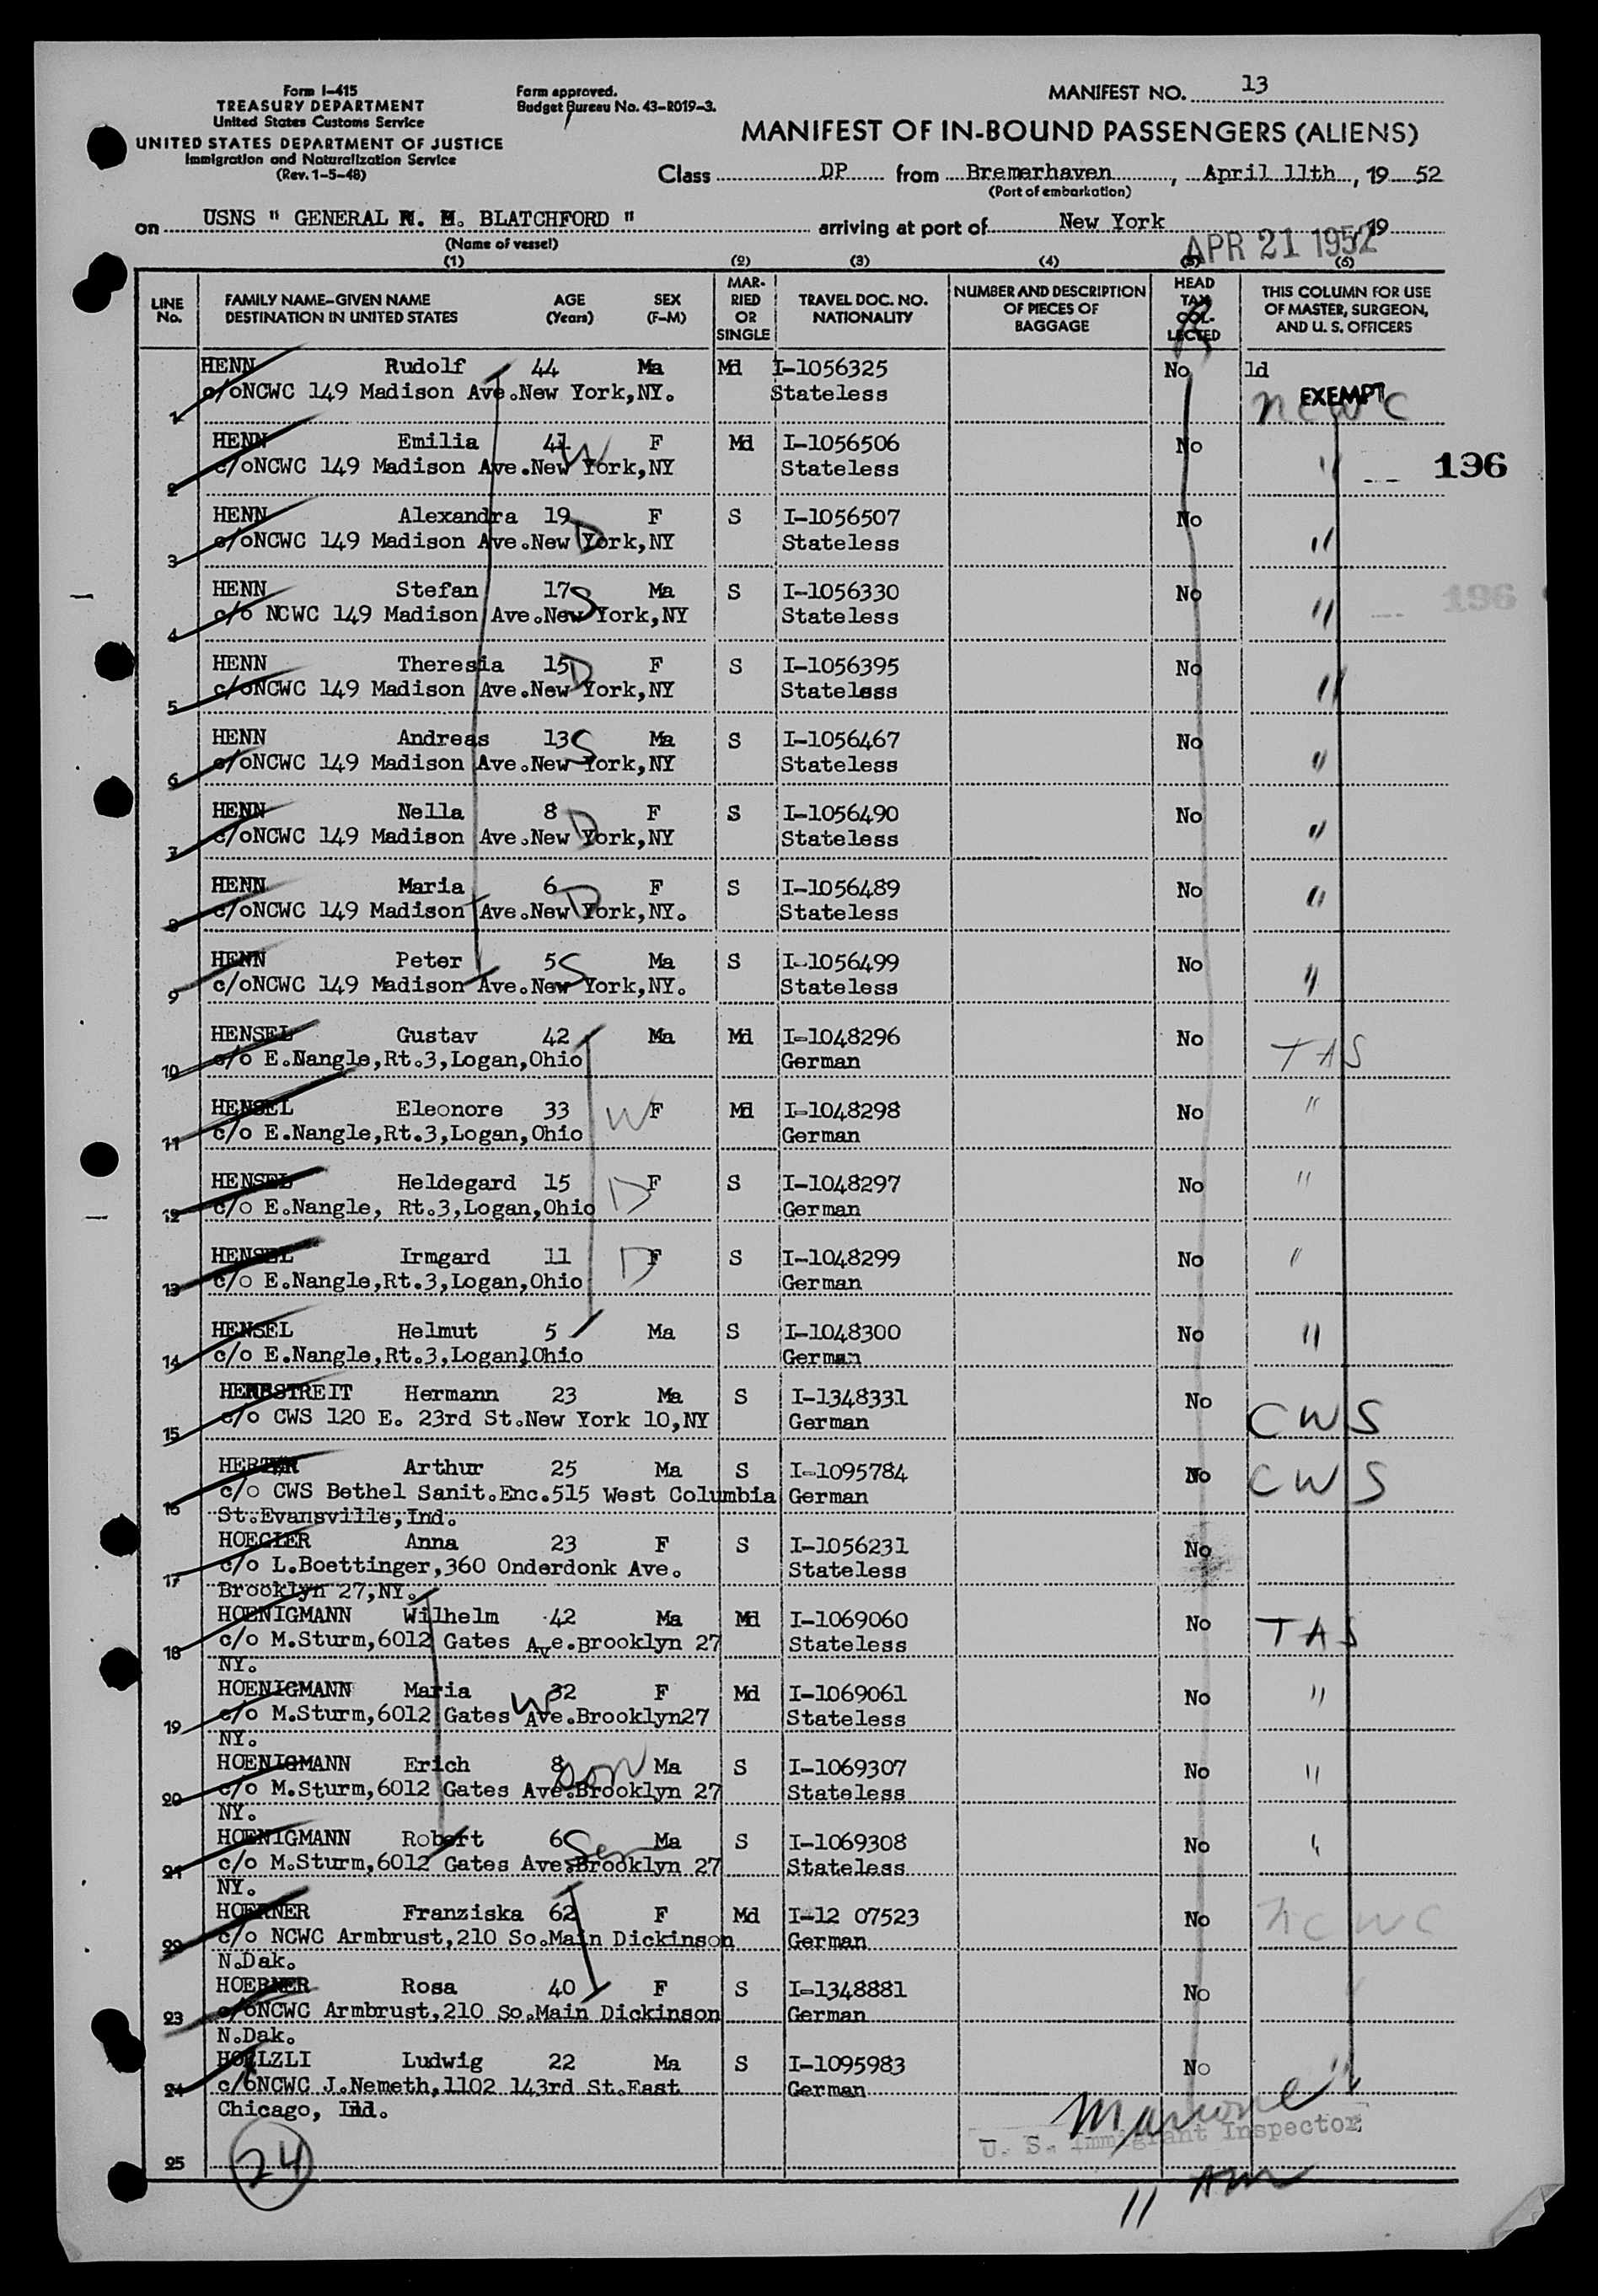 Form I-415
TREASURY DEPARTMENT
United States Customs Service
UNITED STATES DEPARTMENT OF JUSTICE
Immigration and Naturalization Service
(Rev. 1-5-48)
Form approved.
Budget Bureau No. 43-R019-3.
MANIFEST NO. 13
MANIFEST OF IN-BOUND PASSENGERS (ALIENS)
Class DP from Bremerhaven, April 11th, 19 52
(Port of embarkation)
on USNS " GENERAL M. BLATCHFORD " arriving at port of New York, 19
(Name of vessel)
APR 21 1952
(1) (2) (3) (4) (5) (6)
LINE No.
FAMILY NAME-GIVEN NAME AGE SEX
DESTINATION IN UNITED STATES (Years) (F-M)
MAR-RIED OR SINGLE
TRAVEL DOC. NO. NATIONALITY
NUMBER AND DESCRIPTION OF PIECES OF BAGGAGE
HEAD TAX COL-LECTED
THIS COLUMN FOR USE OF MASTER, SURGEON, AND U. S. OFFICERS
HENN Rudolf 44 Ma Md I-1056325 No ld
1 c/oNCWC 149 Madison Ave.New York,NY. Stateless EXEMPT NCWC
HENN Emilia 41 W F Md I-1056506 No
2 c/oNCWC 149 Madison Ave.New York,NY Stateless " 196
HENN Alexandra 19 D F S I-1056507 No
3 c/oNCWC 149 Madison Ave.New York,NY Stateless "
HENN Stefan 17 S Ma S I-1056330 No
4 c/o NCWC 149 Madison Ave.New York,NY Stateless " 196
HENN Theresia 15 D F S I-1056395 No
5 c/oNCWC 149 Madison Ave.New York,NY Stateless "
HENN Andreas 13 S Ma S I-1056467 No
6 c/oNCWC 149 Madison Ave.New York,NY Stateless "
HENN Nella 8 D F S I-1056490 No
7 c/oNCWC 149 Madison Ave.New York,NY Stateless "
HENN Maria 6 D F S I-1056489 No
8 c/oNCWC 149 Madison Ave.New York,NY. Stateless "
HENN Peter 5 S Ma S I-1056499 No
9 c/oNCWC 149 Madison Ave.New York,NY. Stateless "
HENSEL Gustav 42 Ma Md I-1048296 No
10 c/o E.Nangle,Rt.3,Logan,Ohio German TAS
HENSEL Eleonore 33 W F Md I-1048298 No "
11 c/o E.Nangle,Rt.3,Logan,Ohio German
HENSEL Heldegard 15 D F S I-1048297 No "
12 c/o E.Nangle, Rt.3,Logan,Ohio German
HENSEL Irmgard 11 D F S I-1048299 No "
13 c/o E.Nangle,Rt.3,Logan,Ohio German
HENSEL Helmut 5 Ma S I-1048300 No "
14 c/o E.Nangle,Rt.3,Logan,Ohio German
HERBSTREIT Hermann 23 Ma S I-1348331 No CWS
15 c/o CWS 120 E. 23rd St.New York 10,NY German
Arthur 25 Ma S I-1095784 No CWS
16 c/o CWS Bethel Sanit.Enc.515 West Columbia German
St.Evansville,Ind.
HOEGLER Anna 23 F S I-1056231 No
17 c/o L.Boettinger,360 Onderdonk Ave. Stateless
Brooklyn 27,NY.
HOENIGMANN Wilhelm 42 Ma Md I-1069060 No TAS
18 c/o M.Sturm,6012 Gates Ave.Brooklyn 27 Stateless
NY.
HOENIGMANN Maria W 32 F Md I-1069061 No "
19 c/o M.Sturm,6012 Gates Ave.Brooklyn27 Stateless
NY.
HOENIGMANN Erich 8 son Ma S I-1069307 No "
20 c/o M.Sturm,6012 Gates Ave.Brooklyn 27 Stateless
NY.
HOENIGMANN Robert 6 Son Ma S I-1069308 No "
21 c/o M.Sturm,6012 Gates Ave.Brooklyn 27 Stateless
NY.
HOERNER Franziska 62 F Md I-12 07523 No NCWC
22 c/o NCWC Armbrust,210 So.Main Dickinson German
N.Dak.
HOERNER Rosa 40 F S I-1348881 No
23 c/oNCWC Armbrust,210 So.Main Dickinson German
N.Dak.
HOELZLI Ludwig 22 Ma S I-1095983 No "
24 c/oNCWC J.Nemeth,1102 143rd St.East German
Chicago, Ind.
U. S. Immigrant Inspector
25 24